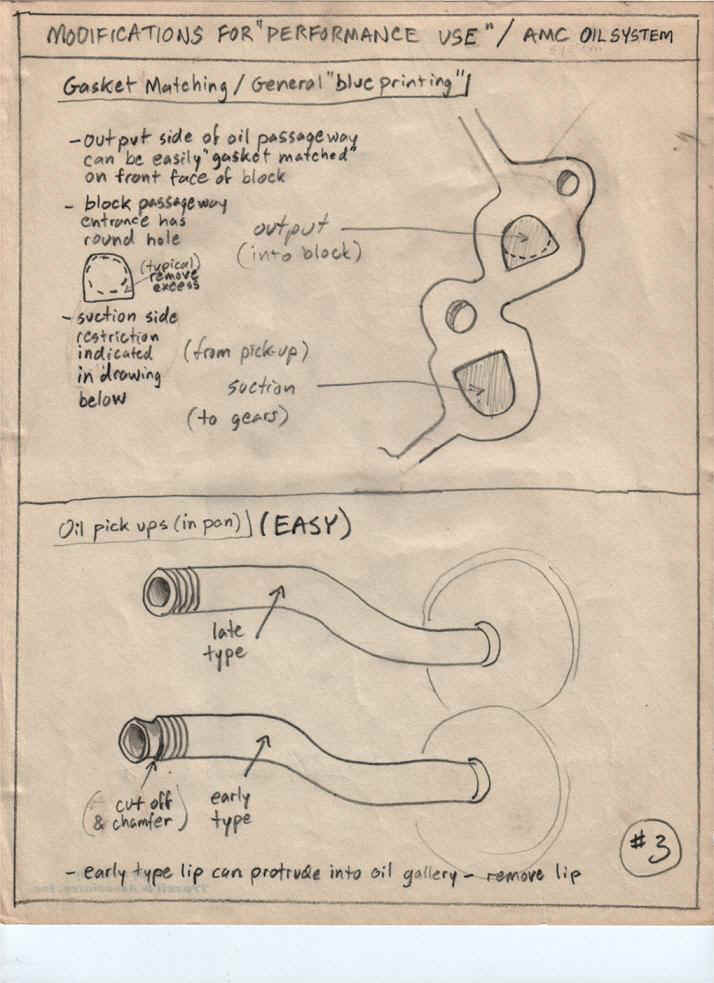 MODIFICATIONS FOR "PERFORMANCE USE" / AMC OIL SYSTEM
Gasket Matching / General "blue printing"
- output side of oil passageway
can be easily "gasket matched"
on front face of block
- block passageway
entrance has
round hole
(typical)
remove
excess
- suction side
restriction
indicated
in drawing
below
output
(into block)
(from pick-up)
suction
(to gears)
Oil pick ups (in pan) (EASY)
late
type
(cut off
& chamfer)
early
type
#3
- early type lip can protrude into oil gallery - remove lip